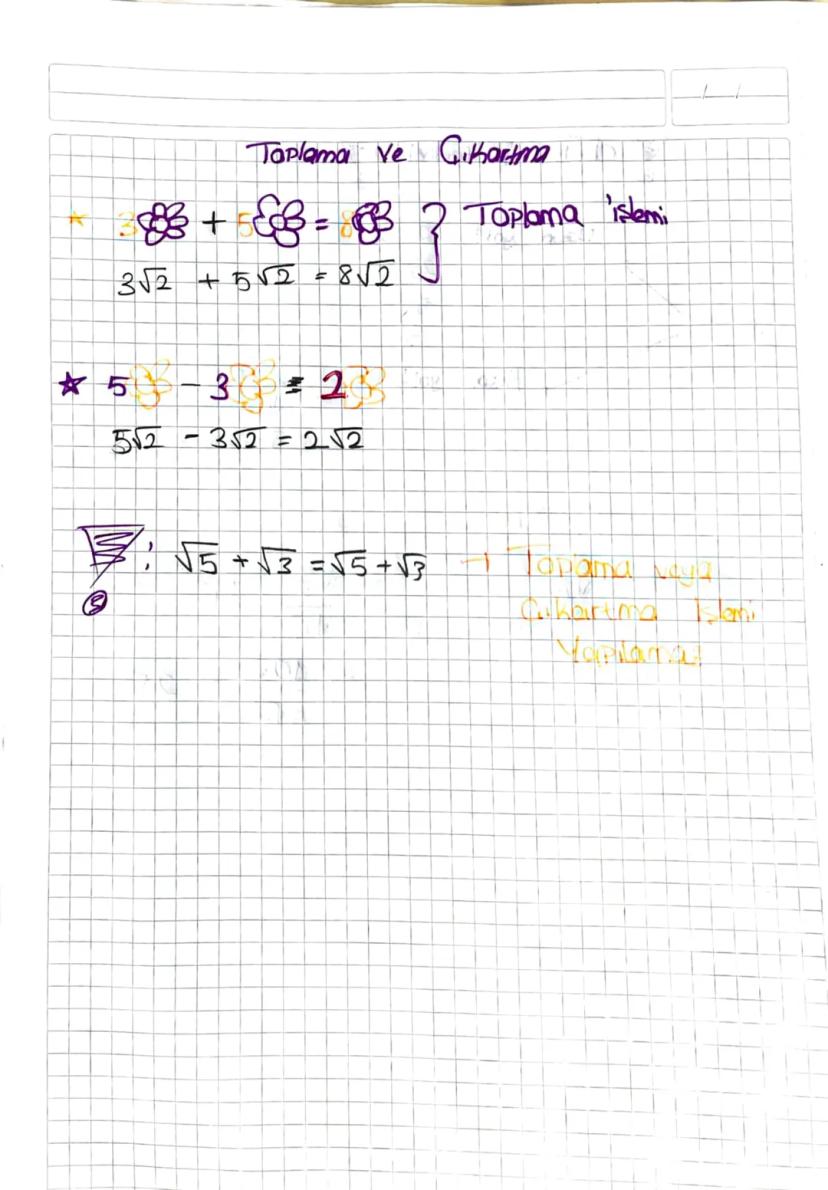 Toplama ve Çıkartma
3 + 5 = 8 } Toplama işlemi
3√2 + 5√2 = 8√2
5 - 3 = 2
5√2 - 3√2 = 2√2
: √5 + √3 = √5 + √3 → Toplama veya
Çıkartma İşlemi
Yapılamaz!